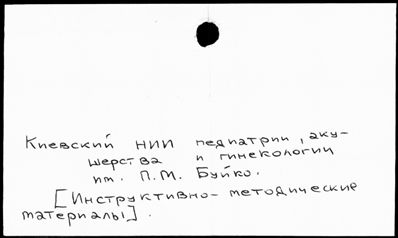 Киевский НИИ педиатрии, аку-
шерства и гинекологии
им. П.М. Буйко.
[Инструктивно-методические
материалы].